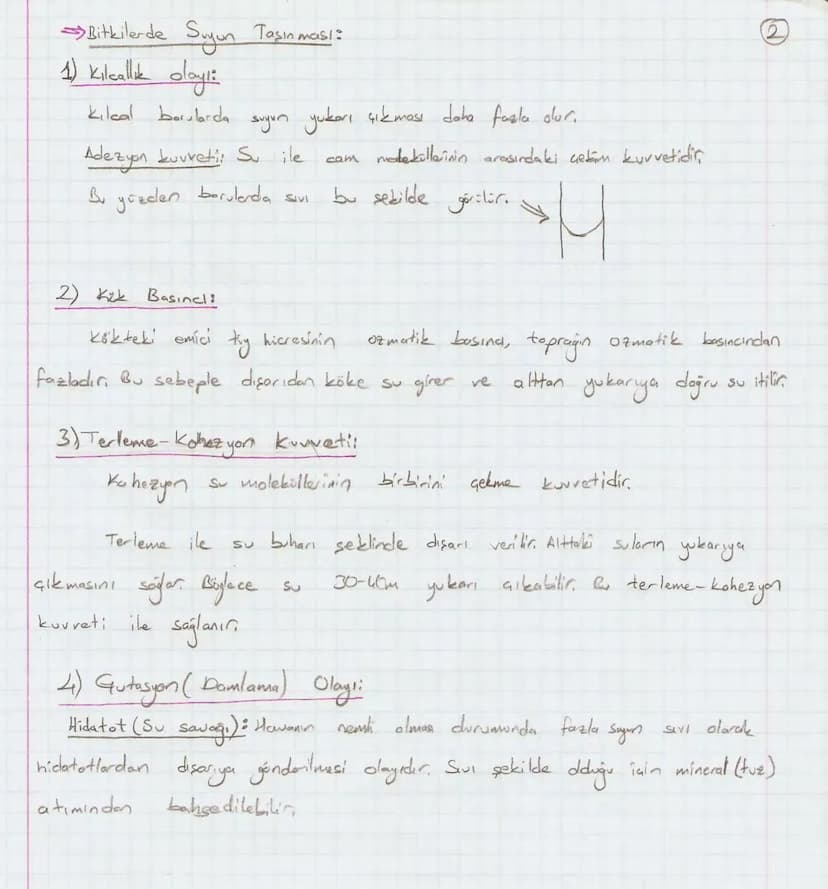 ⇒Bitkilerde Suyun Taşınması:
2
1) Kılcallık olayı:
Kılcal borularda suyun yukarı çıkması daha fazla olur.
Adezyon kuvveti: Su ile cam moleküllerinin arasındaki çekim kuvvetidir.
Bu yüzden borularda sıvı bu şekilde görülür. ⇒
2) Kök Basıncı:
Kökteki emici tüy hücresinin ozmotik basıncı, toprağın ozmotik basıncından
fazladır. Bu sebeple dışarıdan köke su girer ve alttan yukarıya doğru su itilir.
3) Terleme-Kohezyon Kuvveti:
Kohezyon su moleküllerinin birbirini çekme kuvvetidir.
Terleme ile su buharı şeklinde dışarı verilir. Alttaki suların yukarıya
çıkmasını sağlar. Böylece su 30-40m yukarı çıkabilir. Bu terleme-kohezyon
kuvveti ile sağlanır.
4) Gutasyon (Damlama) Olayı:
Hidatot (Su savağı): Havanın nemli olması durumunda fazla suyun sıvı olarak
hidatotlardan dışarıya gönderilmesi olayıdır. Sıvı şekilde olduğu için mineral (tuz)
atımından bahsedilebilir.